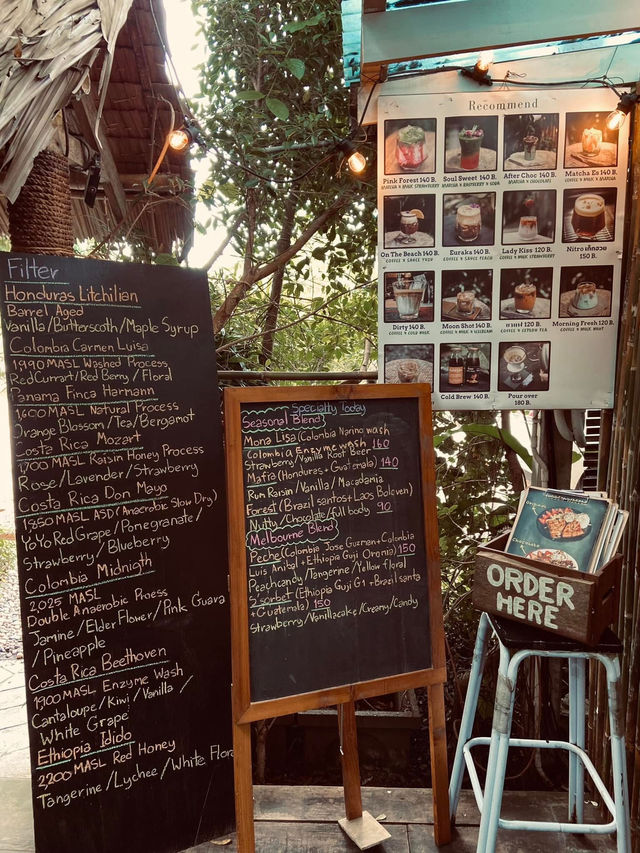 Filter
Honduras Litchilian
Barrel Aged
Vanilla/Butterscoth/Maple Syrup
Colombia Carmen Luisa
1990 MASL Washed Process
Red Currart/Red Berry/Floral
Panama Finca Harmann
1600 MASL Natural Process
Orange Blossom/Tea/Bergamot
Costa Rica Mozart
1700 MASL Raisin Honey Process
Rose/Lavender/Strawberry
Costa Rica Don Mayo
1850 MASL ASD (Anaerobic Slow Dry)
YoYo Red Grape/Pomegranate/
Strawberry/Blueberry
Colombia Midnigth
2,025 MASL
Double Anaerobic Proess
Jamine/Elder Flower/Pink Guava
/Pineapple
Costa Rica Beethoven
1900 MASL Enzyme Wash
Cantaloupe/Kiwi/Vanilla/
White Grape
Ethiopia Idido
2,200 MASL Red Honey
Tangerine/Lychee/White Flora
Specialty Today
Seasonal Blend
Mona Lisa (Colombia Narino wash
Colombia Enzyme wash 160
Strawberry/Vanilla Root Beer
Mafia (Honduras + Guatemala) 140
Rum Raisin/Vanilla/Macadamia
Forest (Brazil santos + Laos Boleven)
Nutty/Chocolate/full body 90
Melbourne Blend
Peche (Colombia Jose Guzman + Colombia
Luis Anibal + Ethiopia Guji Oromia) 150
Peachcandy/Tangerine/Yellow floral
S'sorbet (Ethiopia Guji G1 + Brazil santa
+ Guatemala) 150
Strawberry/Vanillacake/Creamy/Candy
Recommend
Pink Forest 140 B. Soul Sweet 140 B. After Choc 140 B. Matcha Es 140 B.
MATCHA & MILK STRAWBERRY MATCHA & RASPBERRY & SODA MATCHA & CHOCOLATE COFFEE & MILK & MATCHA
On The Beach 140 B. Euraka 140 B. Lady Kiss 120 B. Nitro เก็กฮวย
150 B.
COFFEE & SAUCE YUZU COFFEE & SAUCE PEACH COFFEE & MILK STRAWBERRY
Dirty 140 B. Moon Shot 140 B. กาแฟ 120 B. Morning Fresh 120 B.
COFFEE & COLD MILK COFFEE & MILK & ICECREAM COFFEE & CEYLON TEA COFFEE & MILK MINT
Cold Brew 140 B. Pour over
180 B.
ORDER
HERE